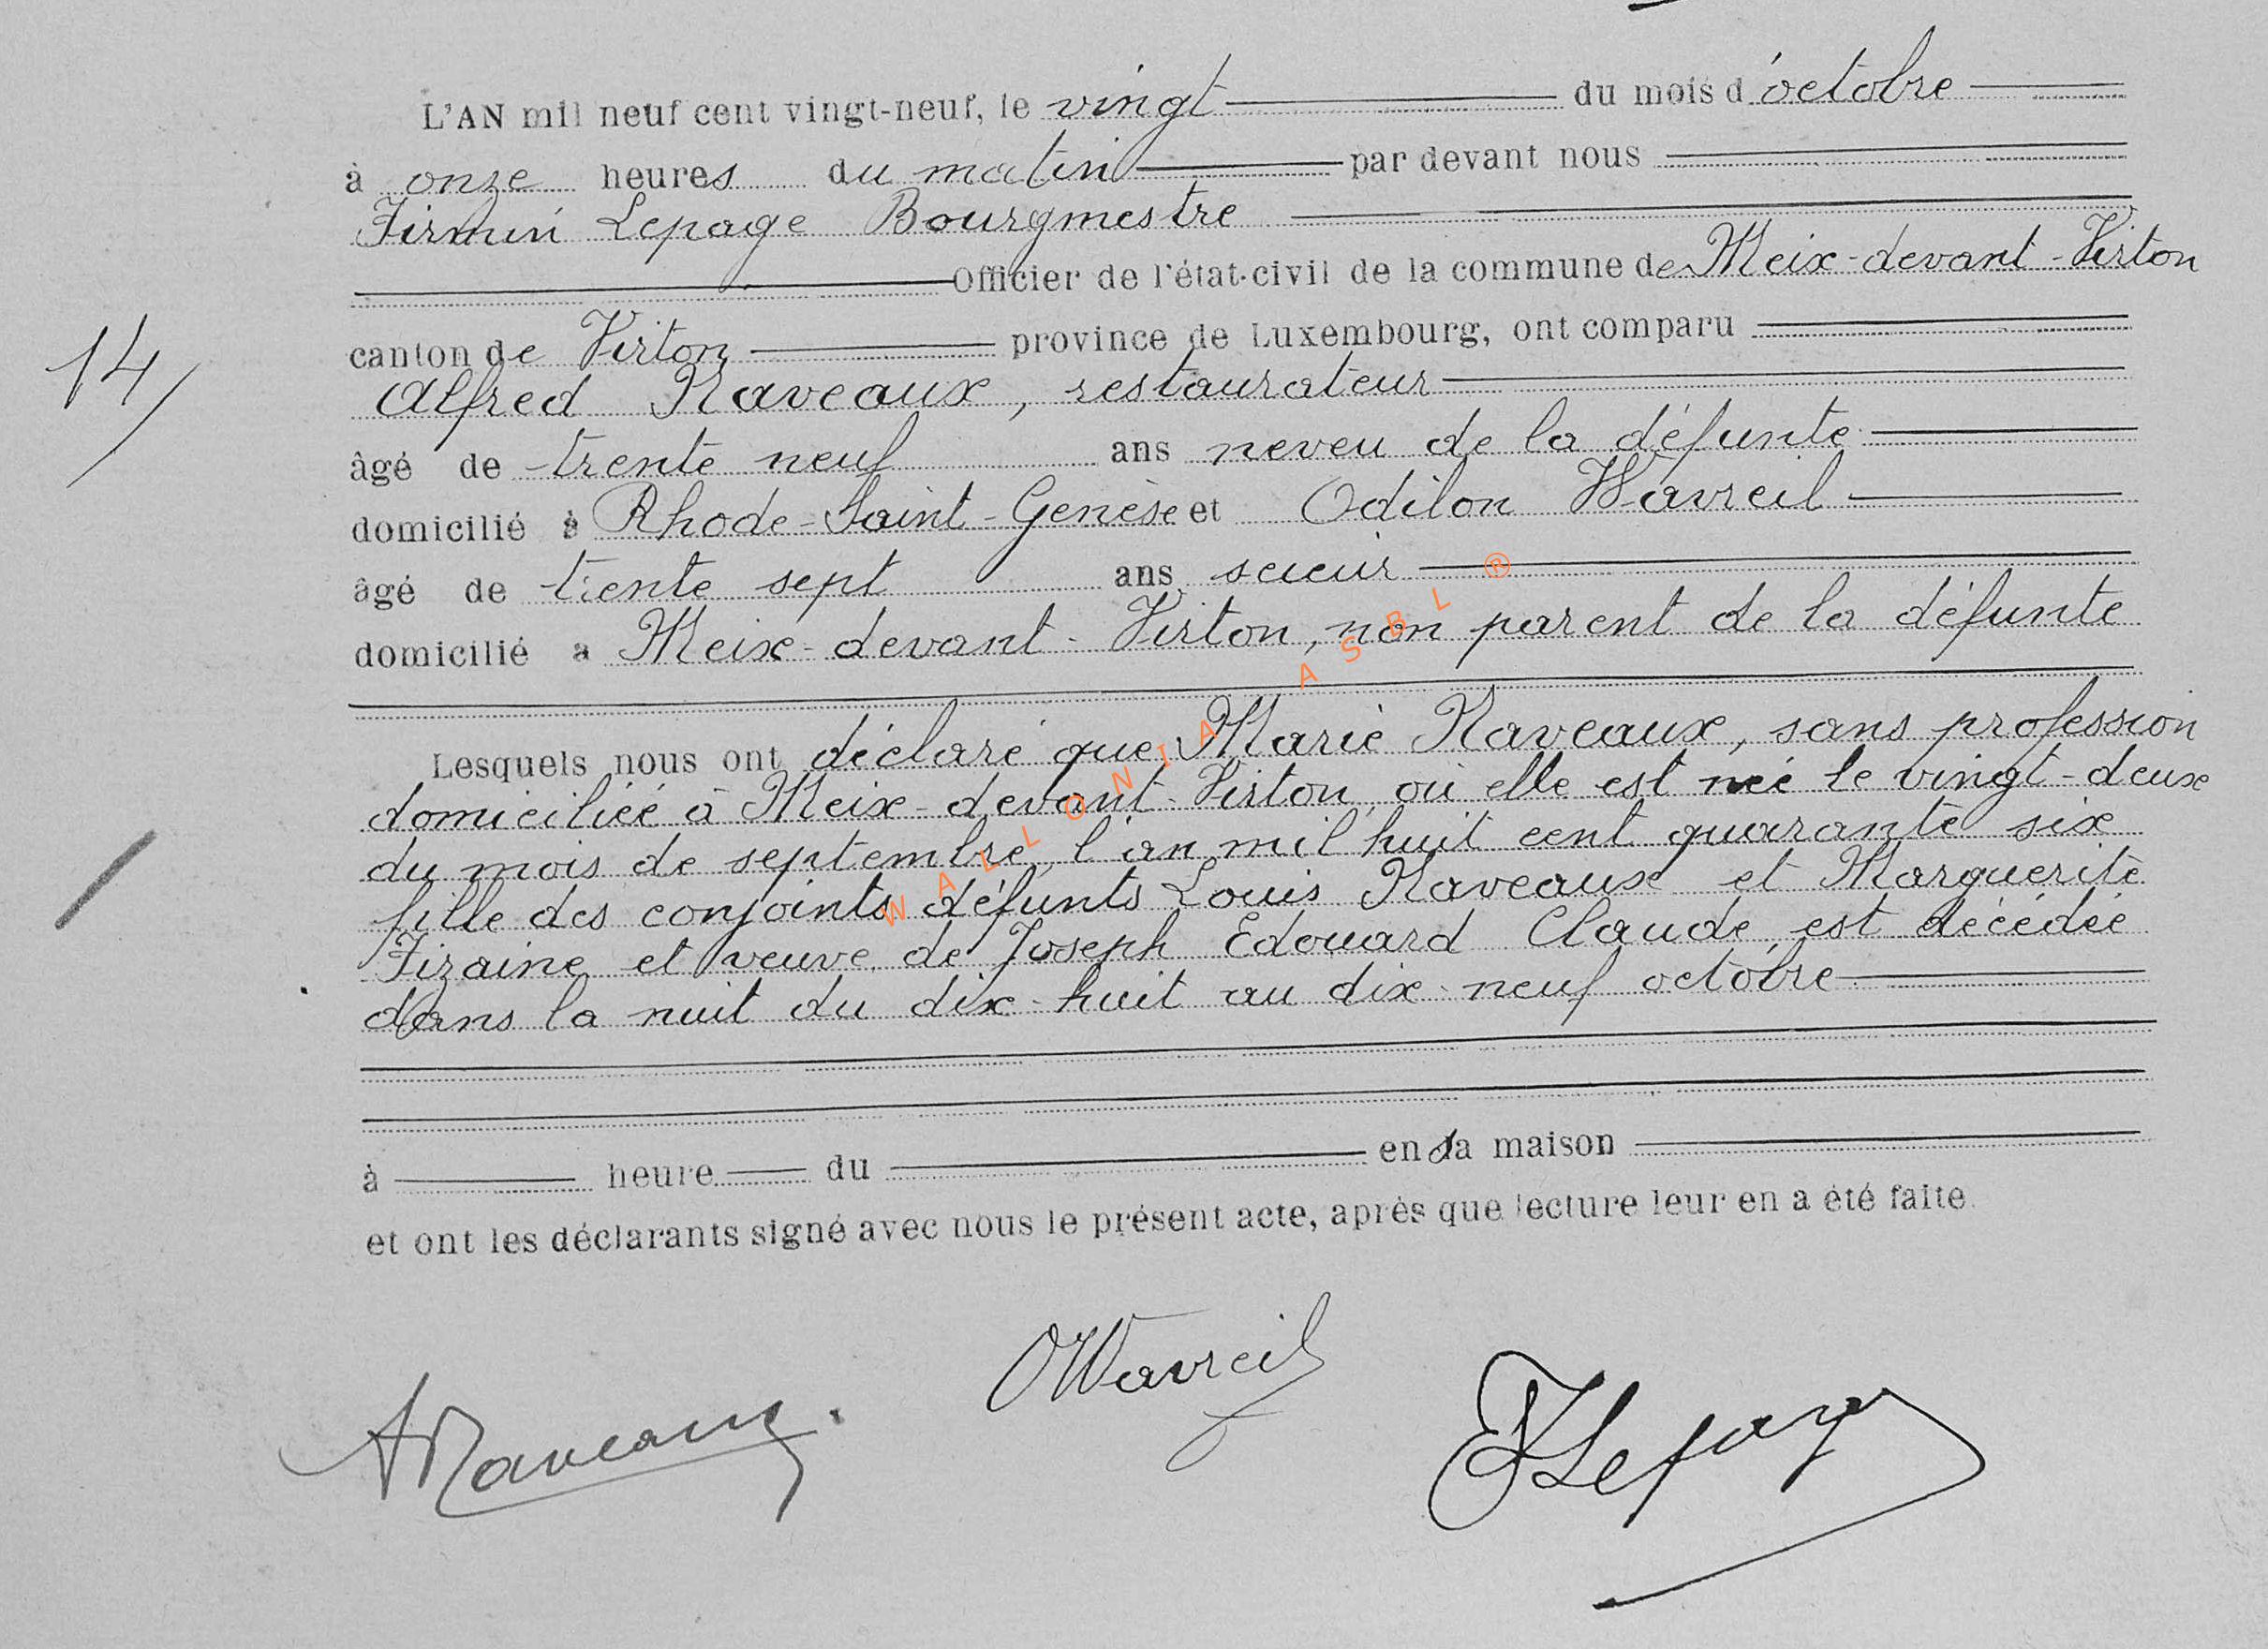 L'AN mil neuf cent vingt-neuf, le vingt du mois d'octobre
à onze heures du matin par devant nous
Firmin Lepage Bourgmestre
Officier de l'état-civil de la commune de Meix-devant-Virton
14/
canton de Virton province de Luxembourg, ont comparu
Alfred Raveaux, restaurateur
âgé de trente neuf ans neveu de la défunte
domicilié à Rhode-Saint-Genèse et Odilon Wavreil
âgé de trente sept ans scieur
domicilié a Meix-devant-Virton, non parent de la défunte
Lesquels nous ont déclaré que Marie Raveaux, sans profession
domiciliée à Meix-devant-Virton, où elle est née le vingt-deux
du mois de septembre, l'an mil huit cent quarante six
fille des conjoints défunts Louis Raveaux et Marguerite
Fizaine et veuve de Joseph Edouard Claude, est décédée
dans la nuit du dix-huit au dix-neuf octobre
à heure du en sa maison
et ont les déclarants signé avec nous le présent acte, après que lecture leur en a été faite.
ARaveaux.
OWavreil
FLepage
WALLONIA ASBL ®